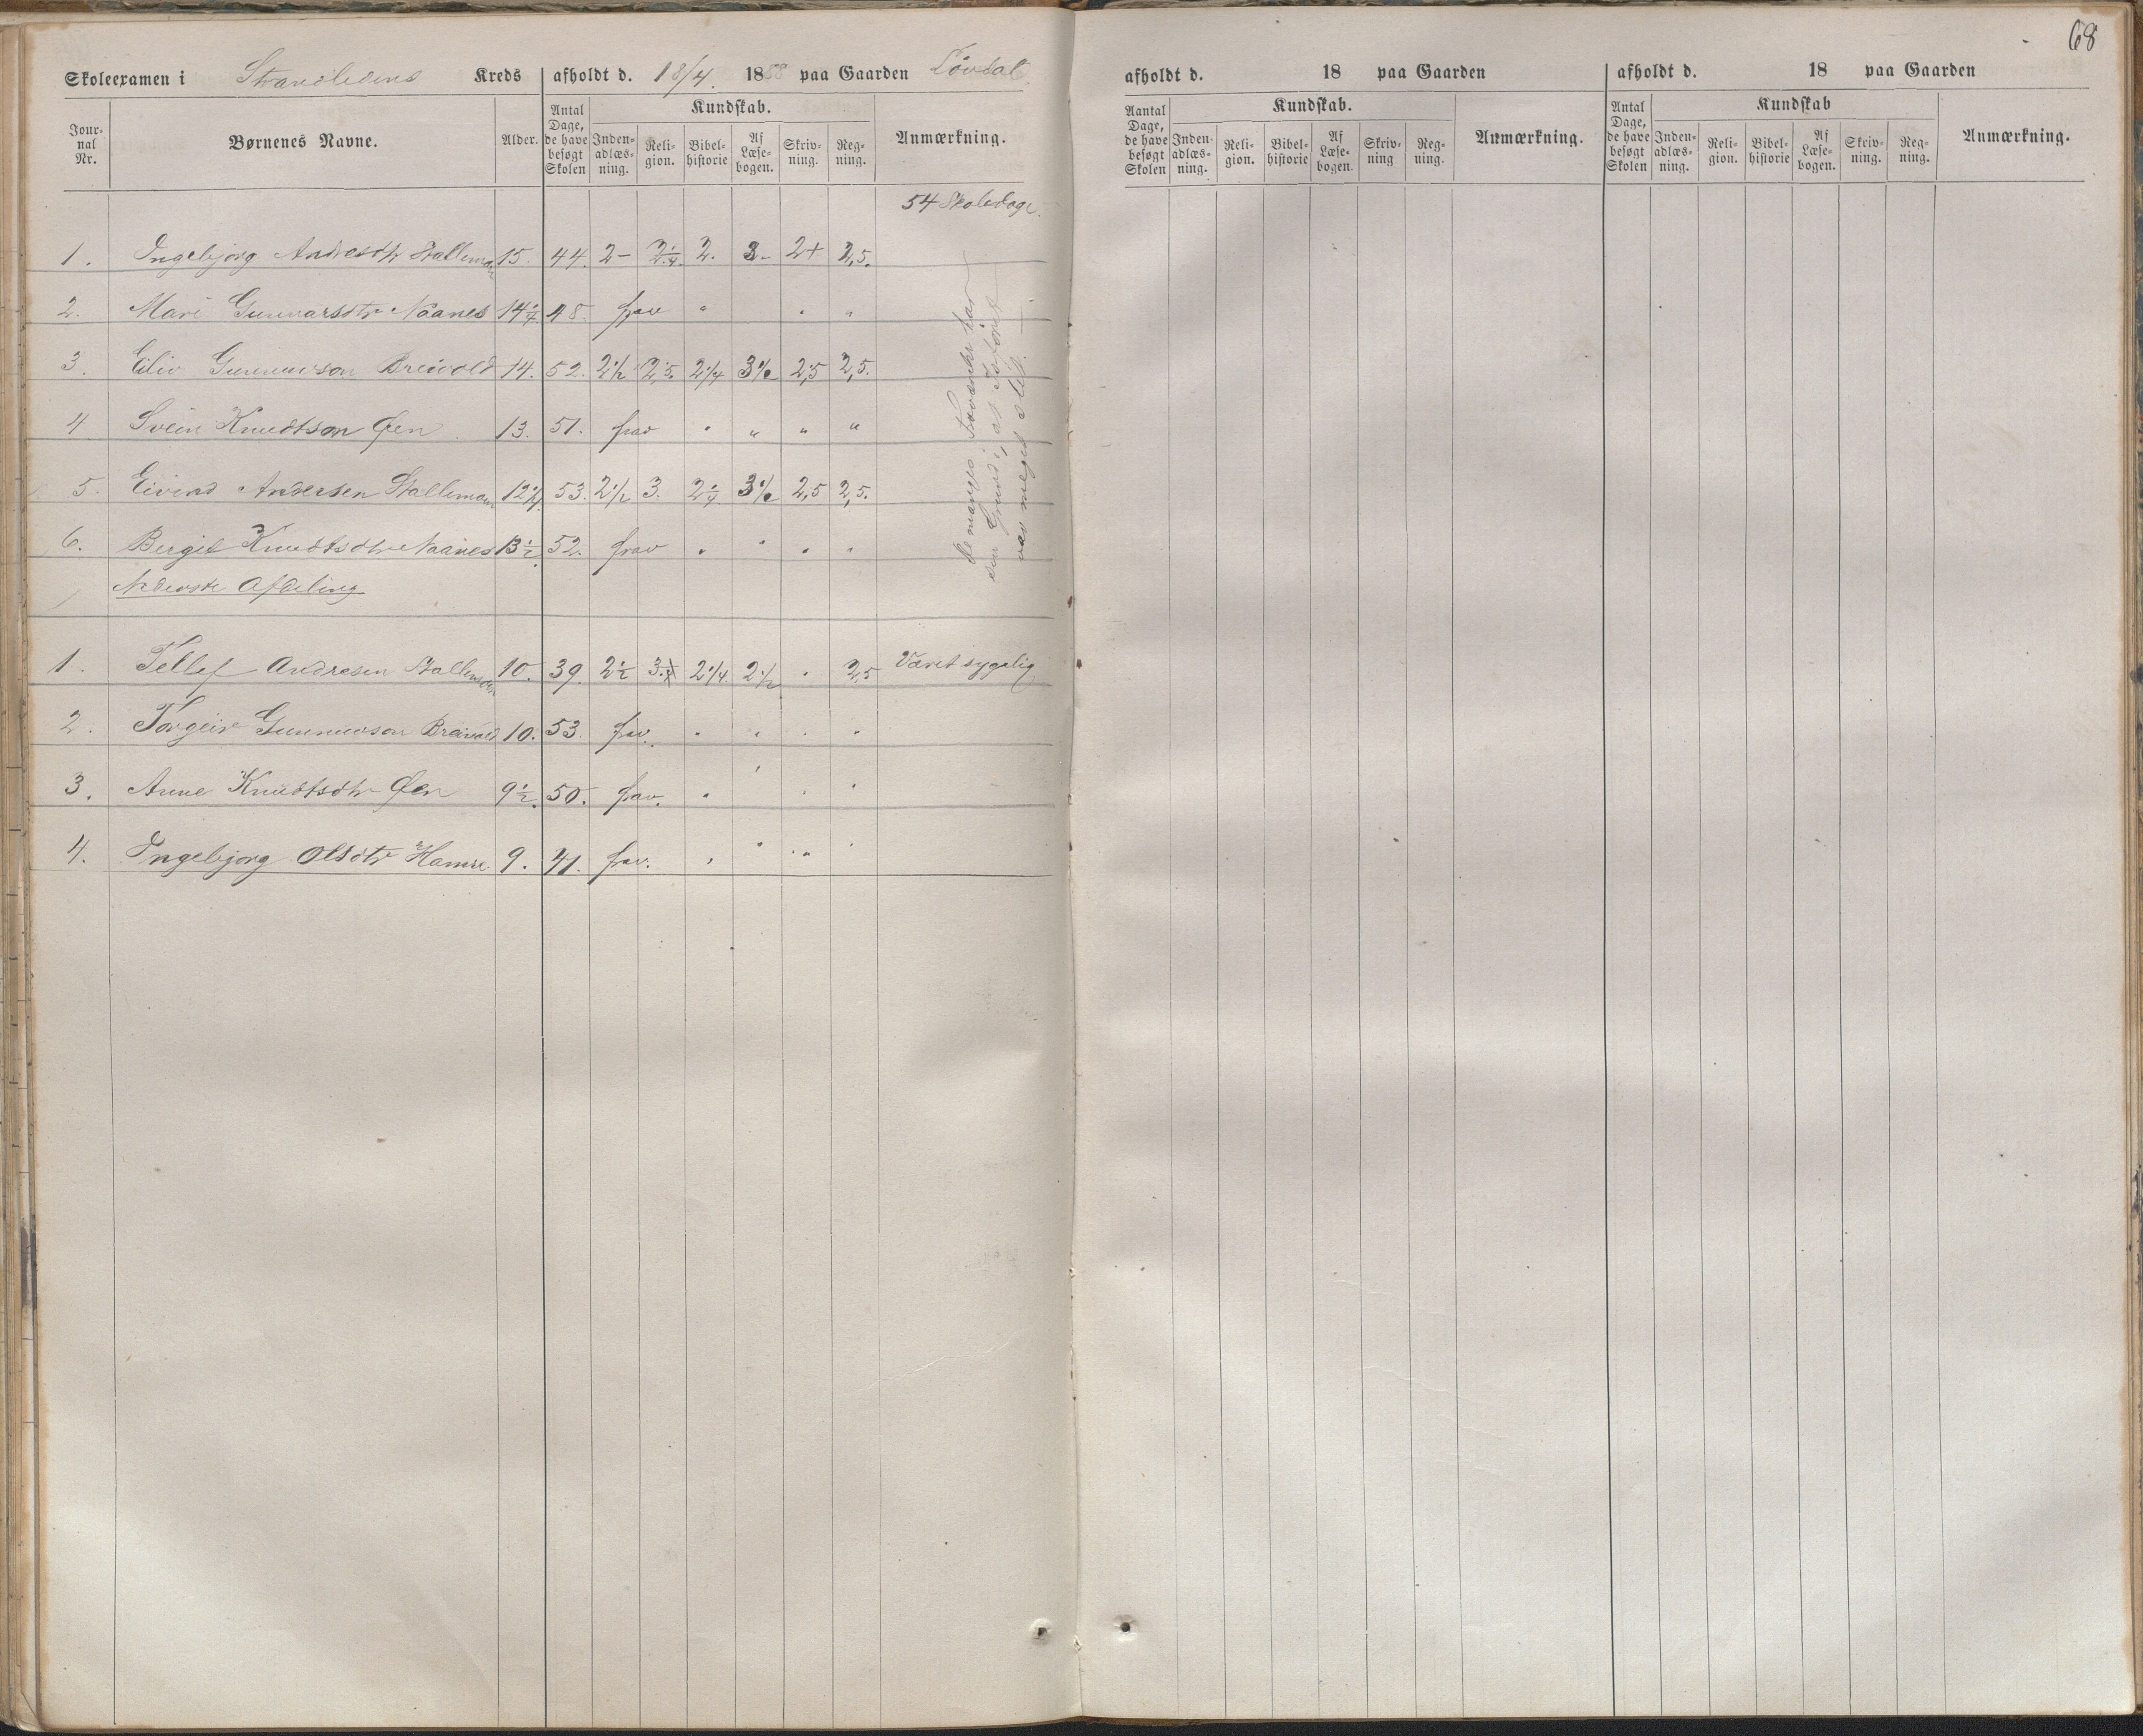 68
Skoleexamen i Strandlidens Kreds afholdt d. 18/4 1888 paa Gaarden Løvdal
Jour-nal Nr. Børnenes Navne. Alder. Antal Dage, de have besøgt Skolen Kundskab. Inden-adlæs-ning. Reli-gion. Bibel-historie Af Læse-bogen. Skriv-ning. Reg-ning. Anmærkning.
54 Skoledage.
1. Ingebjørg Andresdtr Stallemoen 15. 44. 2- 2 1/4. 2. 2- 2+ 2,5.
2. Mari Gunnarsdtr Naanes 14 1/4 48. frav " " "
3. Eiliv Gunnarson Breivold 14. 52. 2 1/2 2,5. 2 1/4 3 1/2 2,5 2,5.
4 Svein Knudtson Øen 13. 51. frav " " " "
5. Eivind Andersen Stallemoen 12 1/2 53. 2 1/2 3. 2 1/4 3 1/2 2,5 2,5.
6. Bergit Knudtsdtr Naanes 13 1/2 52. frav " " " "
De manges Fraværelse har
sin Grund i, at Isføret
var meget slet.
Nederste Afdeling
1. Tellef Andresen Stallemoen 10. 39. 2 1/2 3 2 1/4. 2 1/2 " 2,5 Været sygelig
2. Torgeir Gunnarson Breivold 10. 53. frav. " " " "
3. Anne Knudtsdtr Øen 9 1/2. 50. frav. " " " "
4. Ingebjørg Olsdtr Hamre 9. 41. frav. " " " "
afholdt d. 18 paa Gaarden
Aantal Dage, de have besøgt Skolen Kundskab. Inden-adlæs-ning. Reli-gion. Bibel-historie Af Læse-bogen. Skriv-ning Reg-ning. Anmærkning.
afholdt d. 18 paa Gaarden
Antal Dage, de have besøgt Skolen Kundskab Inden-adlæs-ning. Reli-gion. Bibel-historie Af Læse-bogen. Skriv-ning. Reg-ning. Anmærkning.